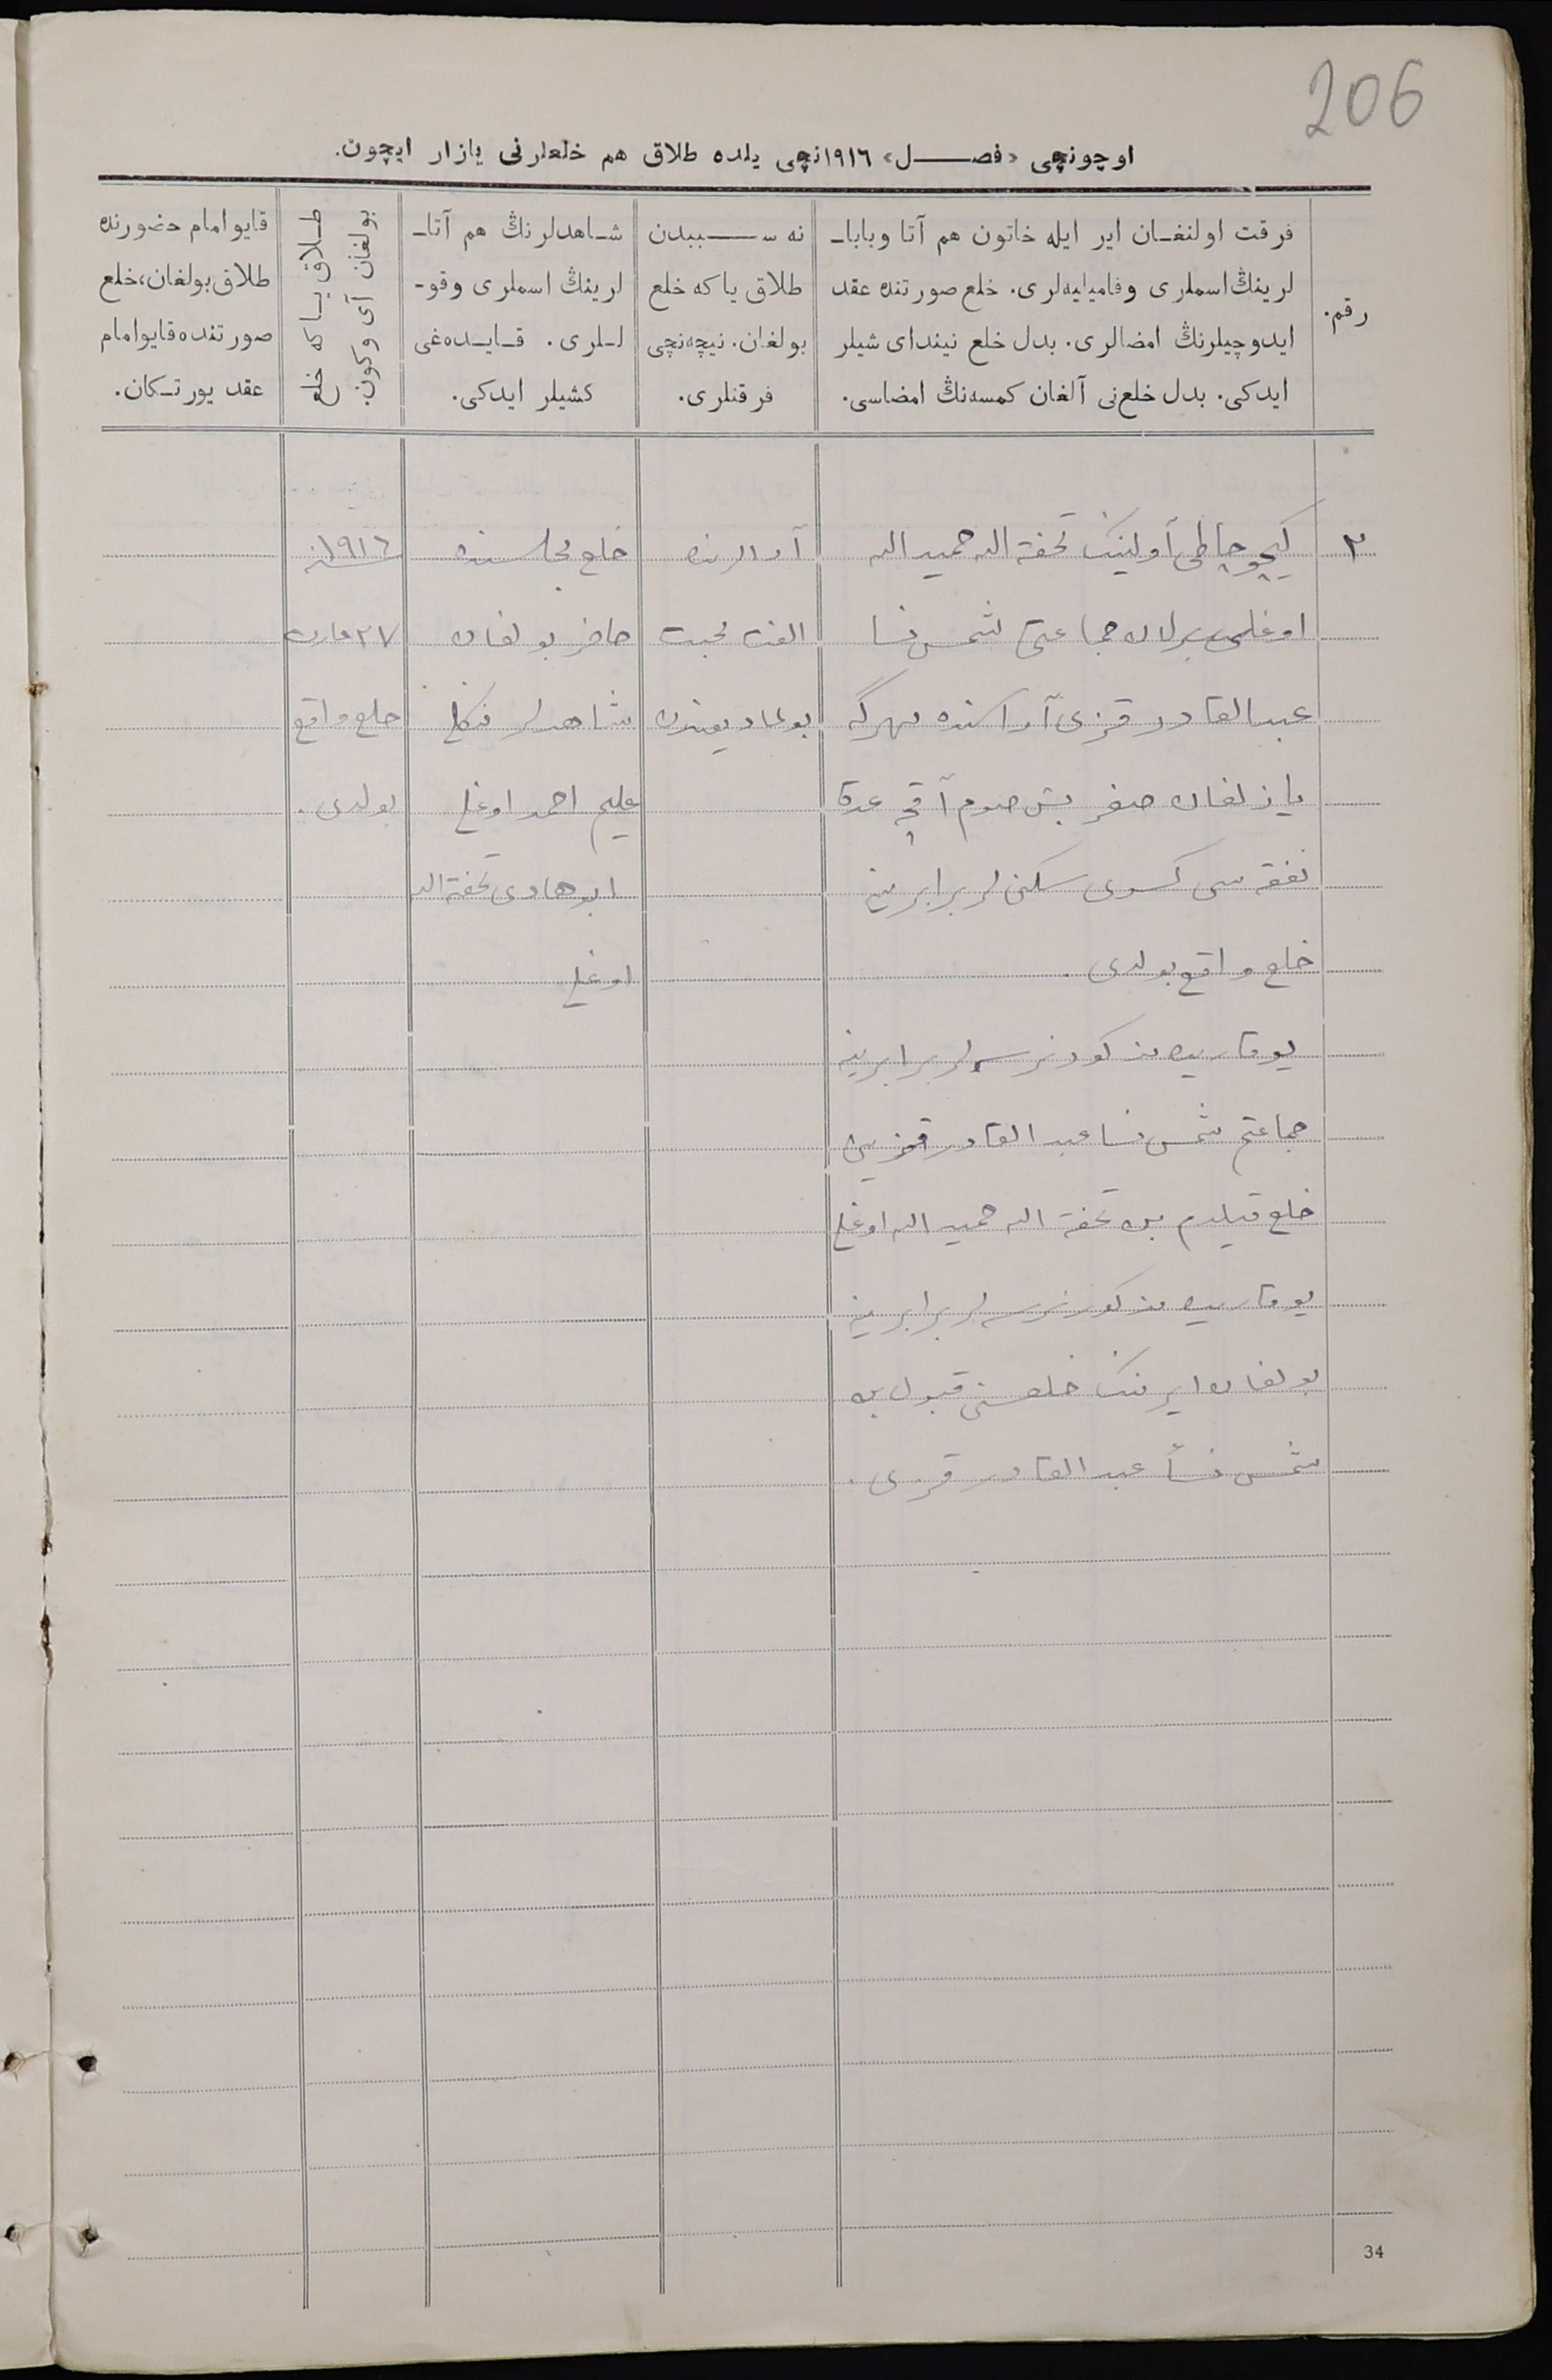 206
اوچونچی «فصل» ١٩١٦نچی یلده طلاق هم خلعلرنی یازار ایچون.
رقم.
فرقت اولنغان ایر ایله خاتون هم آتا وبابا-
لرینڭ اسملری وفامیلیه‌لری. خلع صورتنده عقد
ایدوچیلرنڭ امضالری. بدل خلع نیندای شیلر
ایدکی. بدل خلع‌نی آلغان کمسه‌نڭ امضاسی.
نه سببدن
طلاق یا که خلع
بولغان. نیچه‌نچی
فرقتلری.
شاهدلرنڭ هم آتا-
لرینڭ اسملری وقو-
للری. قایده‌غی
کشیلر ایدکی.
طلاق یا که خلع
بولغان آی وکون.
قایو امام حضورنده
طلاق بولغان، خلع
صورتنده قایو امام
عقد یورتکان.
٢
کیچو چاطی آولینک تحفة الله حمید الله
اوغلی برلان جماعتی شمس نسا
عبد القادر قزی آراسنده مهرگه
یازلغان صغر بش صوم آقچه عدة
نفقه سی کسوی سکنی لر برابرینه
خلع واقع بولدی.
یوقاریده مذکور نرسه لر برابرینه
جماعتم شمس نسا عبد القادر قزیی
خلع قیلدم بن تحفة الله حمید الله اوغلی
یوقاریده مذکور نرسه لر برابرینه
بولغان ایرمنک خلعسنی قبول بن
شمس نسأ عبد القادر قزی.
آرالرنده
الفت محبت
بولمادیغندن
خلع مجلسنده
حاضر بولغان
شاهدلر
علیم احمد اوغلی
تحفة الله
اوغلی
١٩١٦ سنه
٢٧ مارت
خلع واقع
بولدی.
34